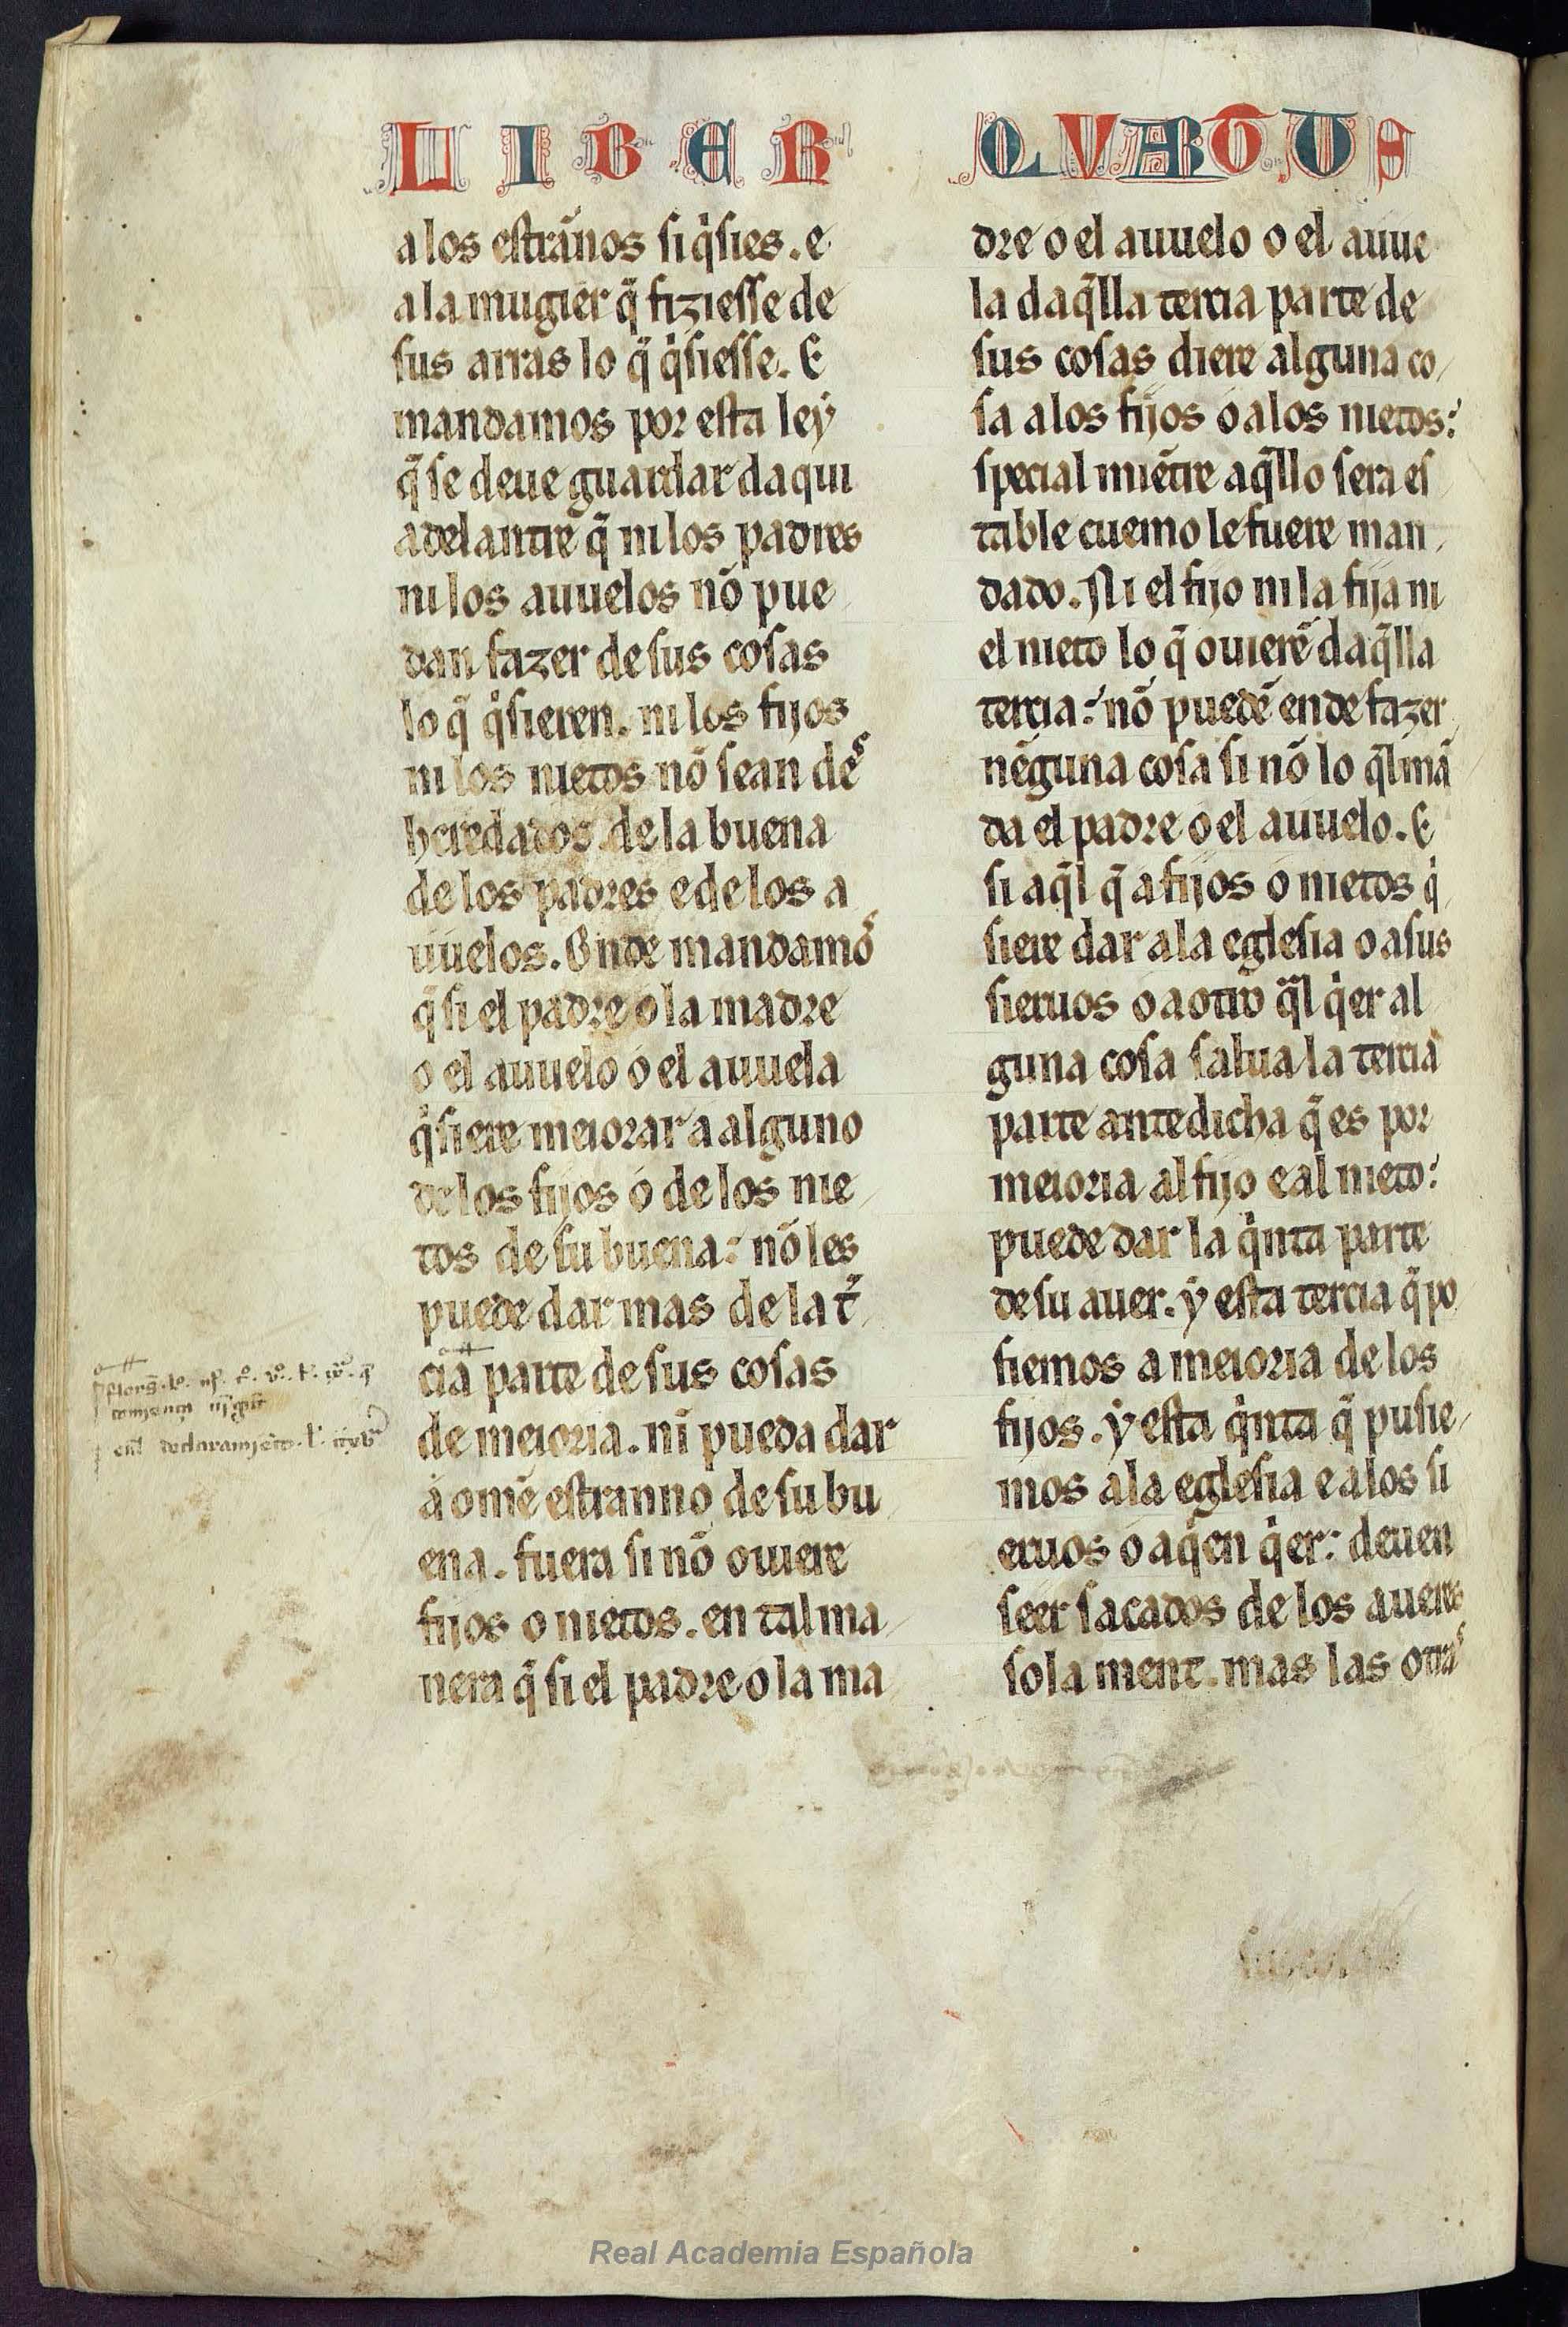 LIBER QVARTUS
a los estrãnos si q̇sies. e
a la mugier q̃ fiziesse de
sus arras lo q̃ q̇siesse. E
mandamos por esta leẏ
q̃ se deue guardar da qui
adelantre q̃ ni los padres
ni los auuelos nõ pue
dan fazer de sus cosas
lo q̃ q̇sieren. ni los fijos
ni los nietos nõ sean des
heredados de la buena
de los padres e de los a
uuelos. Onde mandamos
q̃ si el padre o la madre
o el auuelo o el auuela
q̇siere meiorar a alguno
de los fijos o de los nie
tos de su buena: nõ les
puede dar mas de la t̃
cia parte de sus cosas
de meioria. ni pueda dar
a omẽ estranno de su bu
ena. fuera si nõ ouiere
fijos o nietos. en tal ma
nera q̃ si el padre o la ma
dre o el auuelo o el auue
la daq̃lla tercia parte de
sus cosas diere alguna co
sa a los fijos o a los nietos:
special miẽtre aq̃llo sera es
table cuemo le fuere man
dado. Ni el fijo ni la fija ni
el nieto lo q̃ ouierẽ daq̃lla
tercia: nõ puedẽ ende fazer
nẽguna cosa si nõ lo q̃l mã
da el padre o el auuelo. E
si aq̃l q̃ a fijos o nietos q̇
siere dar a la eglesia o a sus
sieruos o a otro q̃l q̇er al
guna cosa salua la tercia
parte antedicha q̃ es por
meioria al fijo e al nieto:
puede dar la q̇nta parte
de su auer. ẏ esta tercia q̃ po
siemos a meioria de los
fijos. ẏ esta q̇nta q̃ pusie
mos a la eglesia e a los si
eruos o a q̇en q̇er: deuen
seer sacados de los aueres
sola ment. mas las otras
Real Academia Española